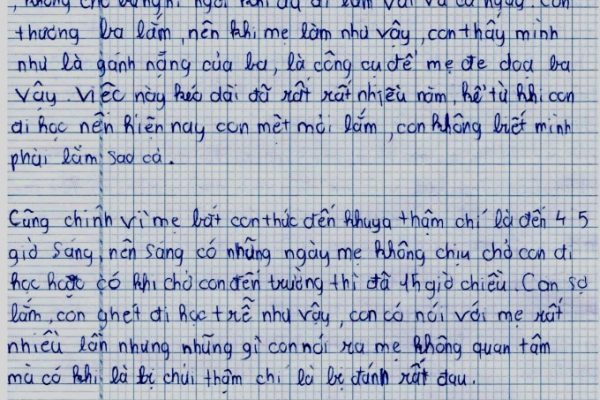 , không cho ba nghỉ ngơi khi đã đi làm vất vả cả ngày. Con
thương ba lắm, nên khi mẹ làm như vậy, con thấy mình
như là gánh nặng của ba, là công cụ để mẹ đe doạ ba
vậy. Việc này kéo dài đã rất rất nhiều năm, kể từ khi con
đi học nên hiện nay con mệt mỏi lắm, con không biết mình
phải làm sao cả.
Cũng chính vì mẹ bắt con thức đến khuya thậm chí là đến 4 5
giờ sáng, nên sáng có những ngày mẹ không chịu chở con đi
học hoặc có khi chở con đến trường thì đã 4h giờ chiều. Con sợ
lắm, con ghét đi học trễ như vậy, con có nói với mẹ rất
nhiều lần nhưng những gì con nói ra mẹ không quan tâm
mà có khi là bị chửi thậm chí là bị đánh rất đau.